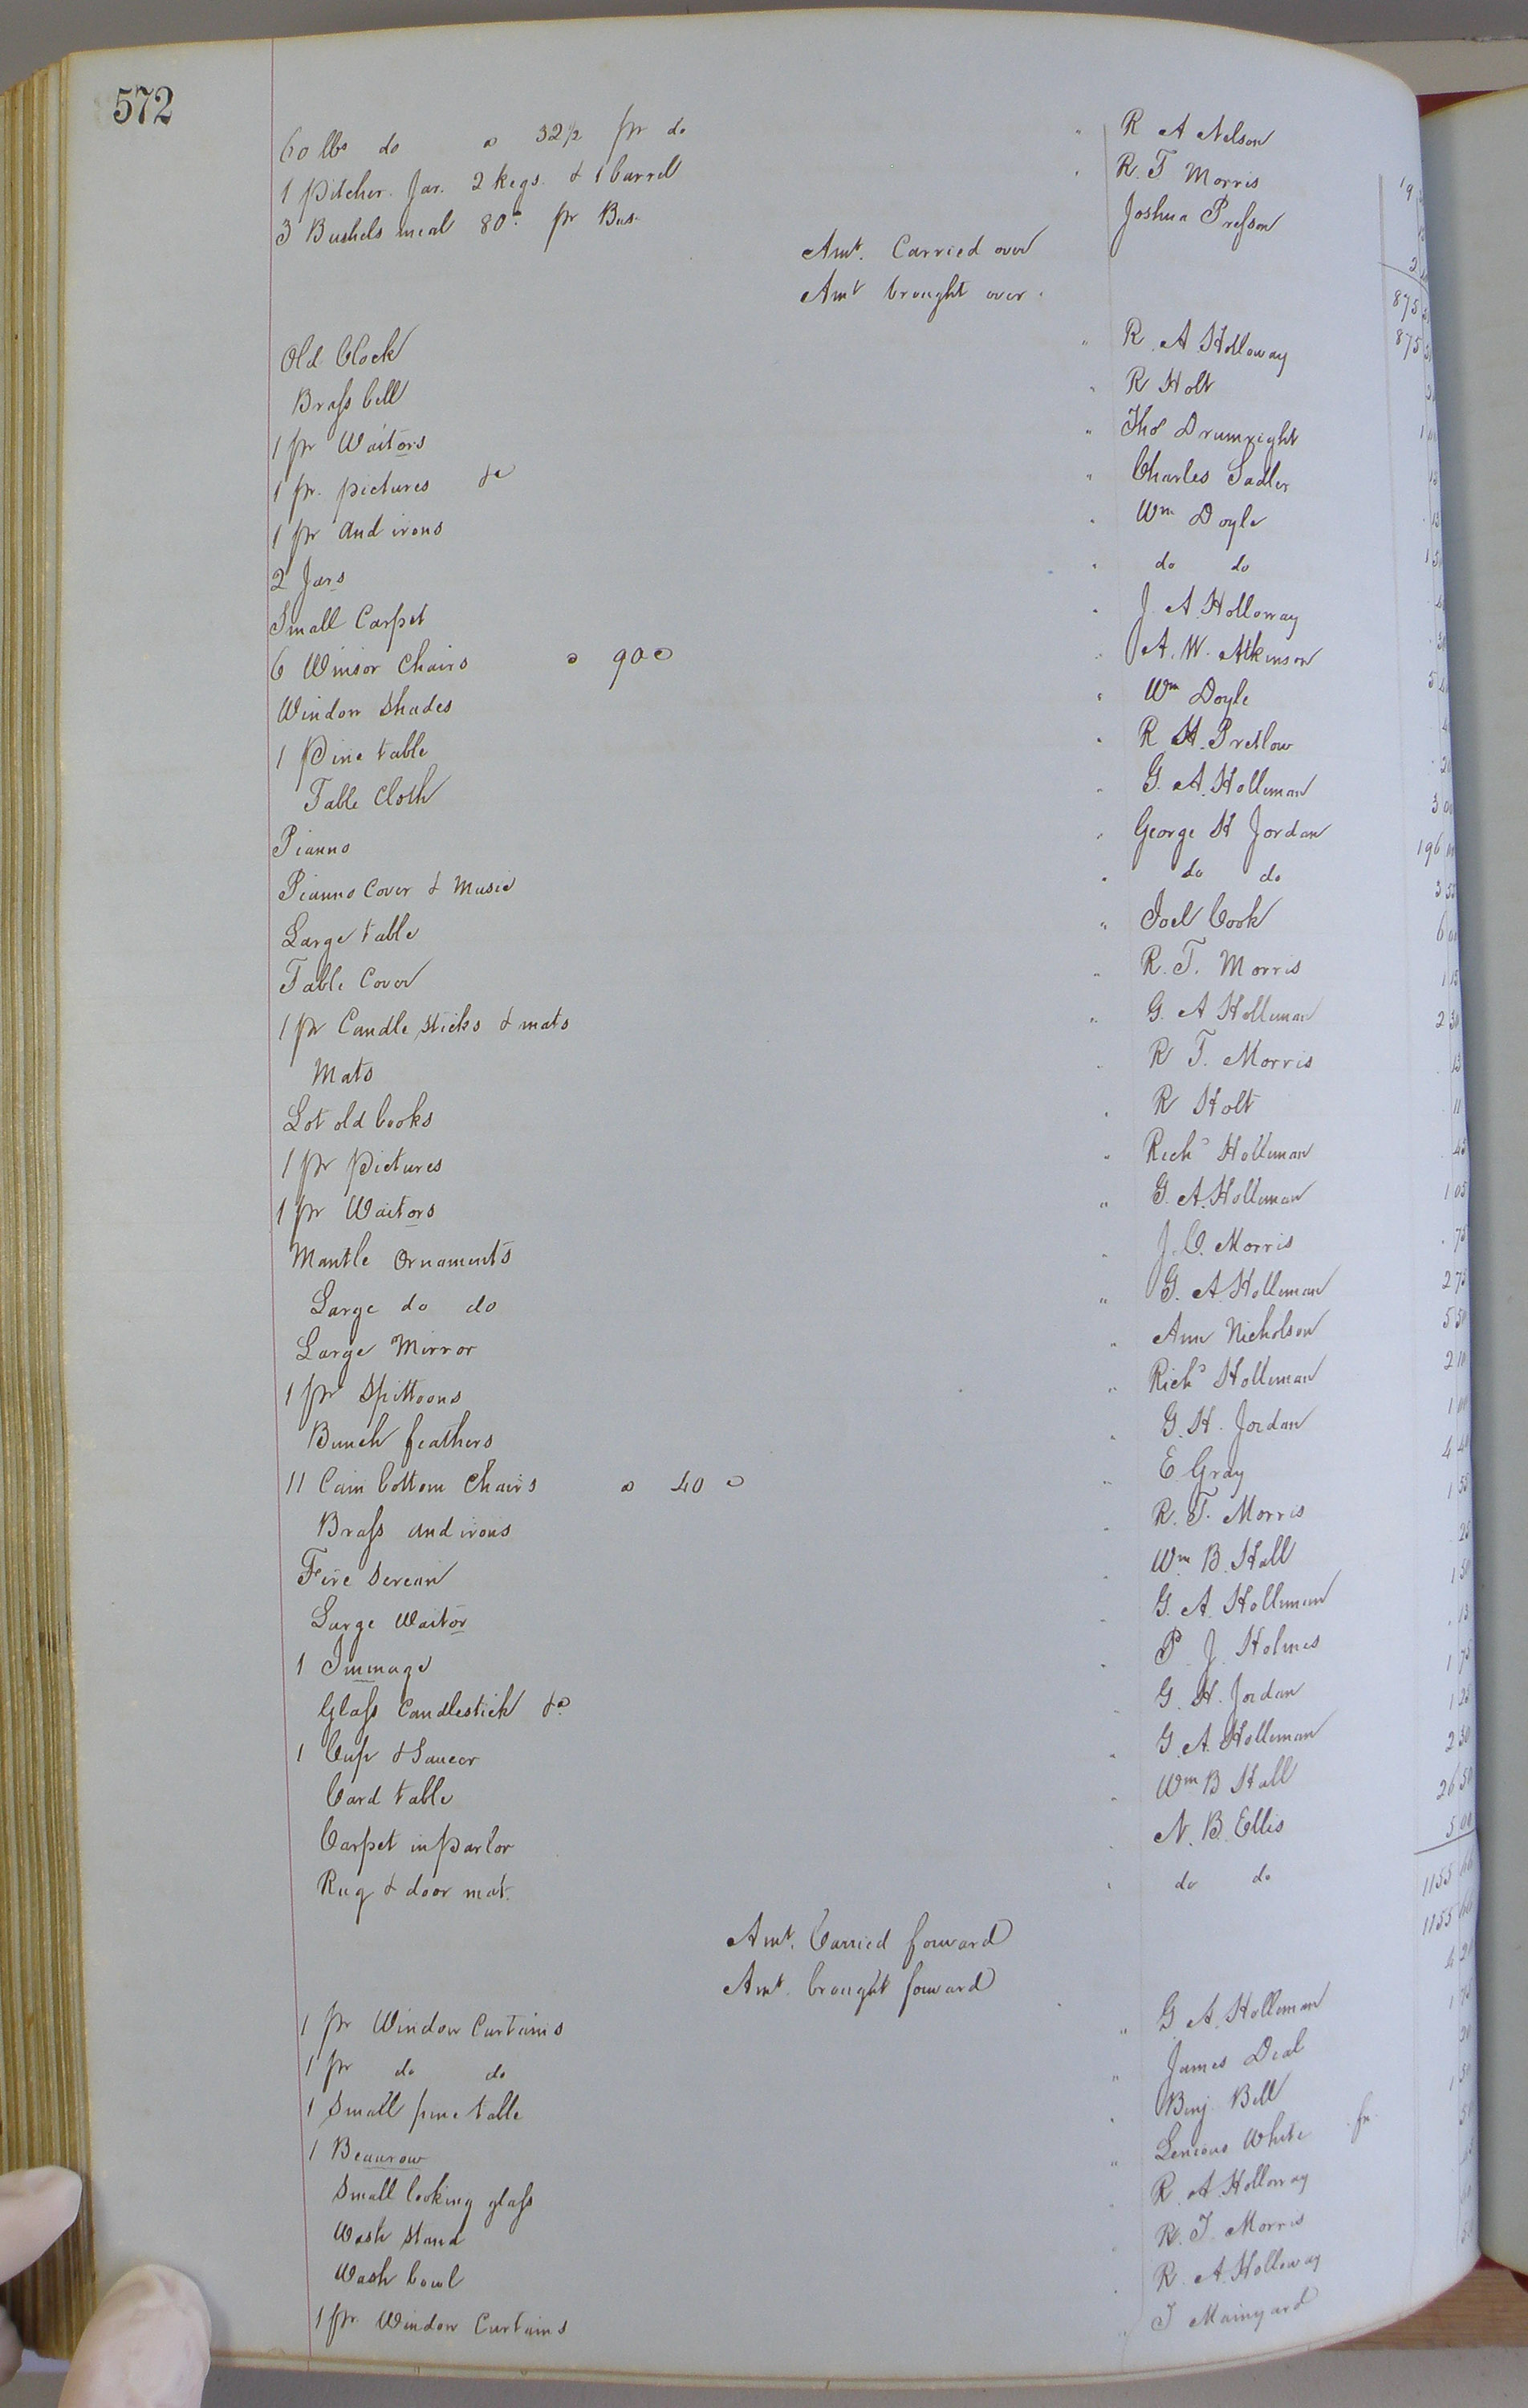 572
60 lbs do @ 32½ pr do " R A Nelson 19
1 Pitcher. Jar. 2 kegs. & 1 barrel " R. T Morris
3 Bushels meal 80c pr Bus. Joshua Presson 2
Amt. Carried over 875
Amt brought over. 875
Old Clock " R. A Holloway
Brass bell " R Holt 1
1 pr Waitors " Thos Drumright
1 pr. pictures &c " Charles Sadler
1 pr And irons " Wm Doyle 1 50
2 Jars " do do
Small Carpet " J. A. Holloway
6 Winsor Chairs @ 90c " A. W. Atkinson 5 40
Window Shades " Wm Doyle
1 Pine table " R. H. Pretlow
Table Cloth " G. A. Holleman 3 00
Pianno " George H Jordan 196 00
Pianno Cover & Music " do do 3 55
Large table " Joel Cook 6 00
Table Cover " R. T. Morris 1 15
1 pr Candle sticks & mats " G. A Holleman 2 30
Mats " R T. Morris 13
Lot old books " R Holt 11
1 pr pictures " Richd Holleman 45
1 pr Waitors " G. A. Holleman 1 05
Mantle Ornaments " J. C. Morris 75
Large do do " G. A Holleman 2 75
Large Mirror " Ann Nicholson 5 50
1 pr Spittoons " Richd Holleman 2 10
Bunch feathers " G. H. Jordan 1 00
11 Cain bottom Chairs @ 40 c " E. Gray 4 40
Brass and irons " R. T. Morris 1 55
Fire Screan " Wm B. Hall 25
Large Waitor " G. A. Holleman 1 50
1 Immage " P. J. Holmes 13
Glass Candlestick &c " G. H. Jordan 1 75
1 Cup & Saucer " G. A. Holleman 1 25
Card table " Wm B Hall 2 50
Carpet in parlor " N. B. Ellis 26 50
Rug & door mat. " do do 5 00
Amt. Carried forward 1155 66
Amt. brought forward 1155 66
1 pr Window Curtains " G. A. Holleman 4 20
1 pr do do " James Deal 1 75
1 Small pine table " Benj. Bell
1 Beaurow " White 1 50
Small looking glass " R. A. Holloway
Wash Stand " R. T. Morris
Wash bowl " R. A. Holloway
1 pr. Window Curtains " T Mainyard